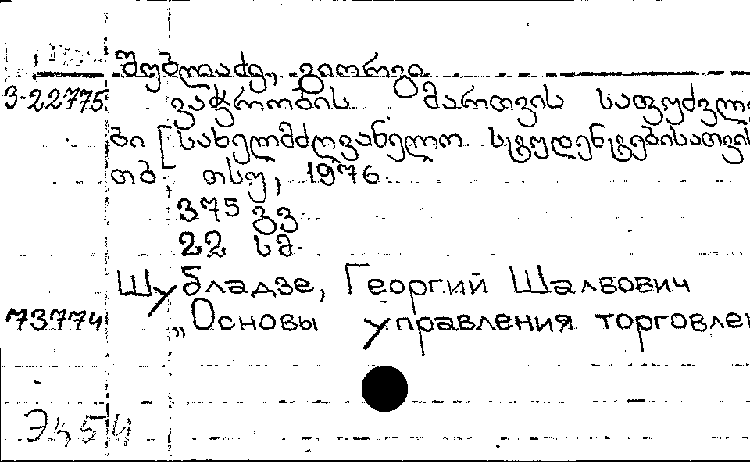 შუბლაძე, გიორგი
3-22775 ვაჭრობის მართვის საფუძვლე
ბი [სახელმძღვანელო სტუდენტებისათვის
თბ., თსუ, 1976.
375 გვ.
22 სმ.
Шубладзе, Георгий Шалвович
73774 „Основы управления торговлей